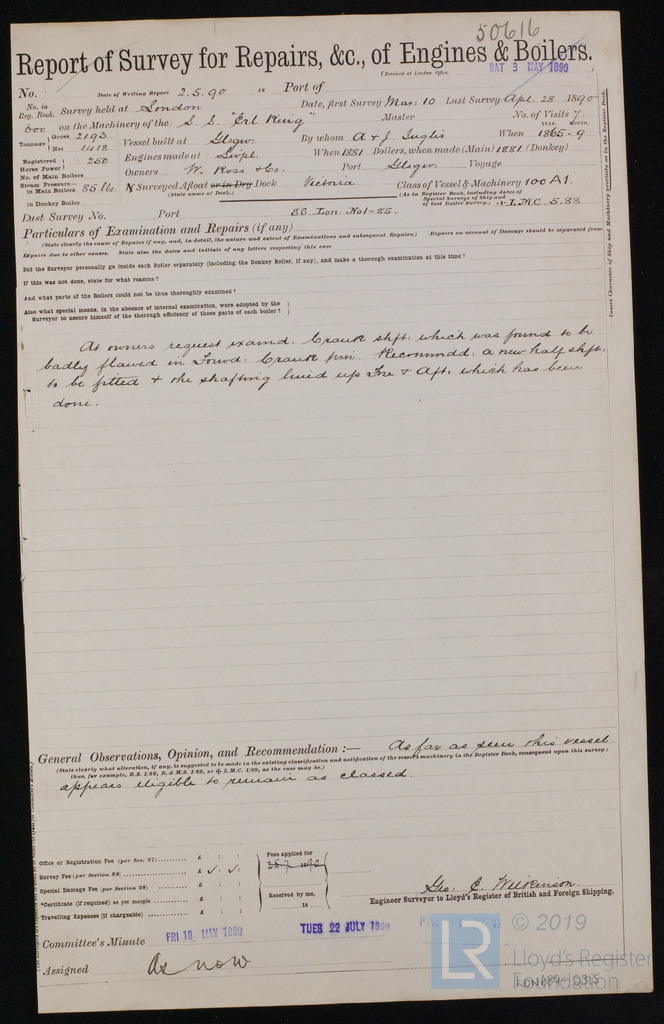 50616
Report of Survey for Repairs, &c., of Engines & Boilers.
(Received at London Office, SAT 3 MAY 1890
No. Date of Writing Report 2.5.90 18 Port of
No. in Reg. Book. Survey held at London Date, first Survey Mar: 10 Last Survey Apl. 28 1890
600 on the Machinery of the S. S. "Erl King" Master No. of Visits 7.
Tonnage Gross 2193 Net 1418 Vessel built at Glsgw. By whom A & J. Inglis When YEAR. MONTH. 1865-9
Registered Horse Power 250 Engines made at Livpl. When 1881 Boilers, when made (Main) 1881 (Donkey)
No. of Main Boilers Owners W. Ross & Co. Port Glsgw. Voyage
Steam Pressure— in Main Boilers 85 lbs. If Surveyed Afloat or in Dry Dock Victoria Class of Vessel & Machinery 100 A1.
(State name of Dock.) (As in Register Book, including dates of Special Surveys of Ship and of last Boiler Survey.) L.M.C. 5.88
in Donkey Boiler
Last Survey No. Port SS. Lon. No1-85.
Particulars of Examination and Repairs (if any)
(State clearly the cause of Repairs if any, and, in detail, the nature and extent of Examinations and subsequent Repairs.) Repairs on account of Damage should be separated from
Repairs due to other causes. State also the dates and initials of any letters respecting this case
Did the Surveyor personally go inside each Boiler separately (including the Donkey Boiler, if any), and make a thorough examination at this time?
If this was not done, state for what reasons?
And what parts of the Boilers could not be thus thoroughly examined?
Also what special means, in the absence of internal examination, were adopted by the
Surveyor to assure himself of the thorough efficiency of those parts of each boiler?
Insert Character of Ship and Machinery precisely as in the Register Book.
At owners request examd: Crank shft: which was found to be
badly flawed in Forwd: Crank pin. Recommdd: a new half shft:
to be fitted & the shafting lined up Fre & Aft: which has been
done.
General Observations, Opinion, and Recommendation :— As far as seen this vessel
(State clearly what alteration, if any, is suggested to be made in the existing classification and notification of the vessel's machinery in the Register Book, consequent upon this survey;
thus, for example, B.S. 1/89, B. & M.S. 1/89, or ✠ L.M.C. 1/89, as the case may be.)
appears eligible to remain as classed.
Office or Registration Fee (per Sec. 27)......... £ : :
Survey Fee (per Section 28)......... £ : :
Special Damage Fee (per Section 28)......... £ : :
*Certificate (if required) as per margin......... £ : :
Travelling Expenses (if chargeable)......... £ : :
Fees applied for
Received by me,
18
Geo. C. Wilkinson.
Engineer Surveyor to Lloyd's Register of British and Foreign Shipping.
Committee's Minute FRI 16 MAY 1890 TUES 22 JULY 1890
Assigned As now
LR © 2019
Lloyd's Register
Foundation
LON689-0315